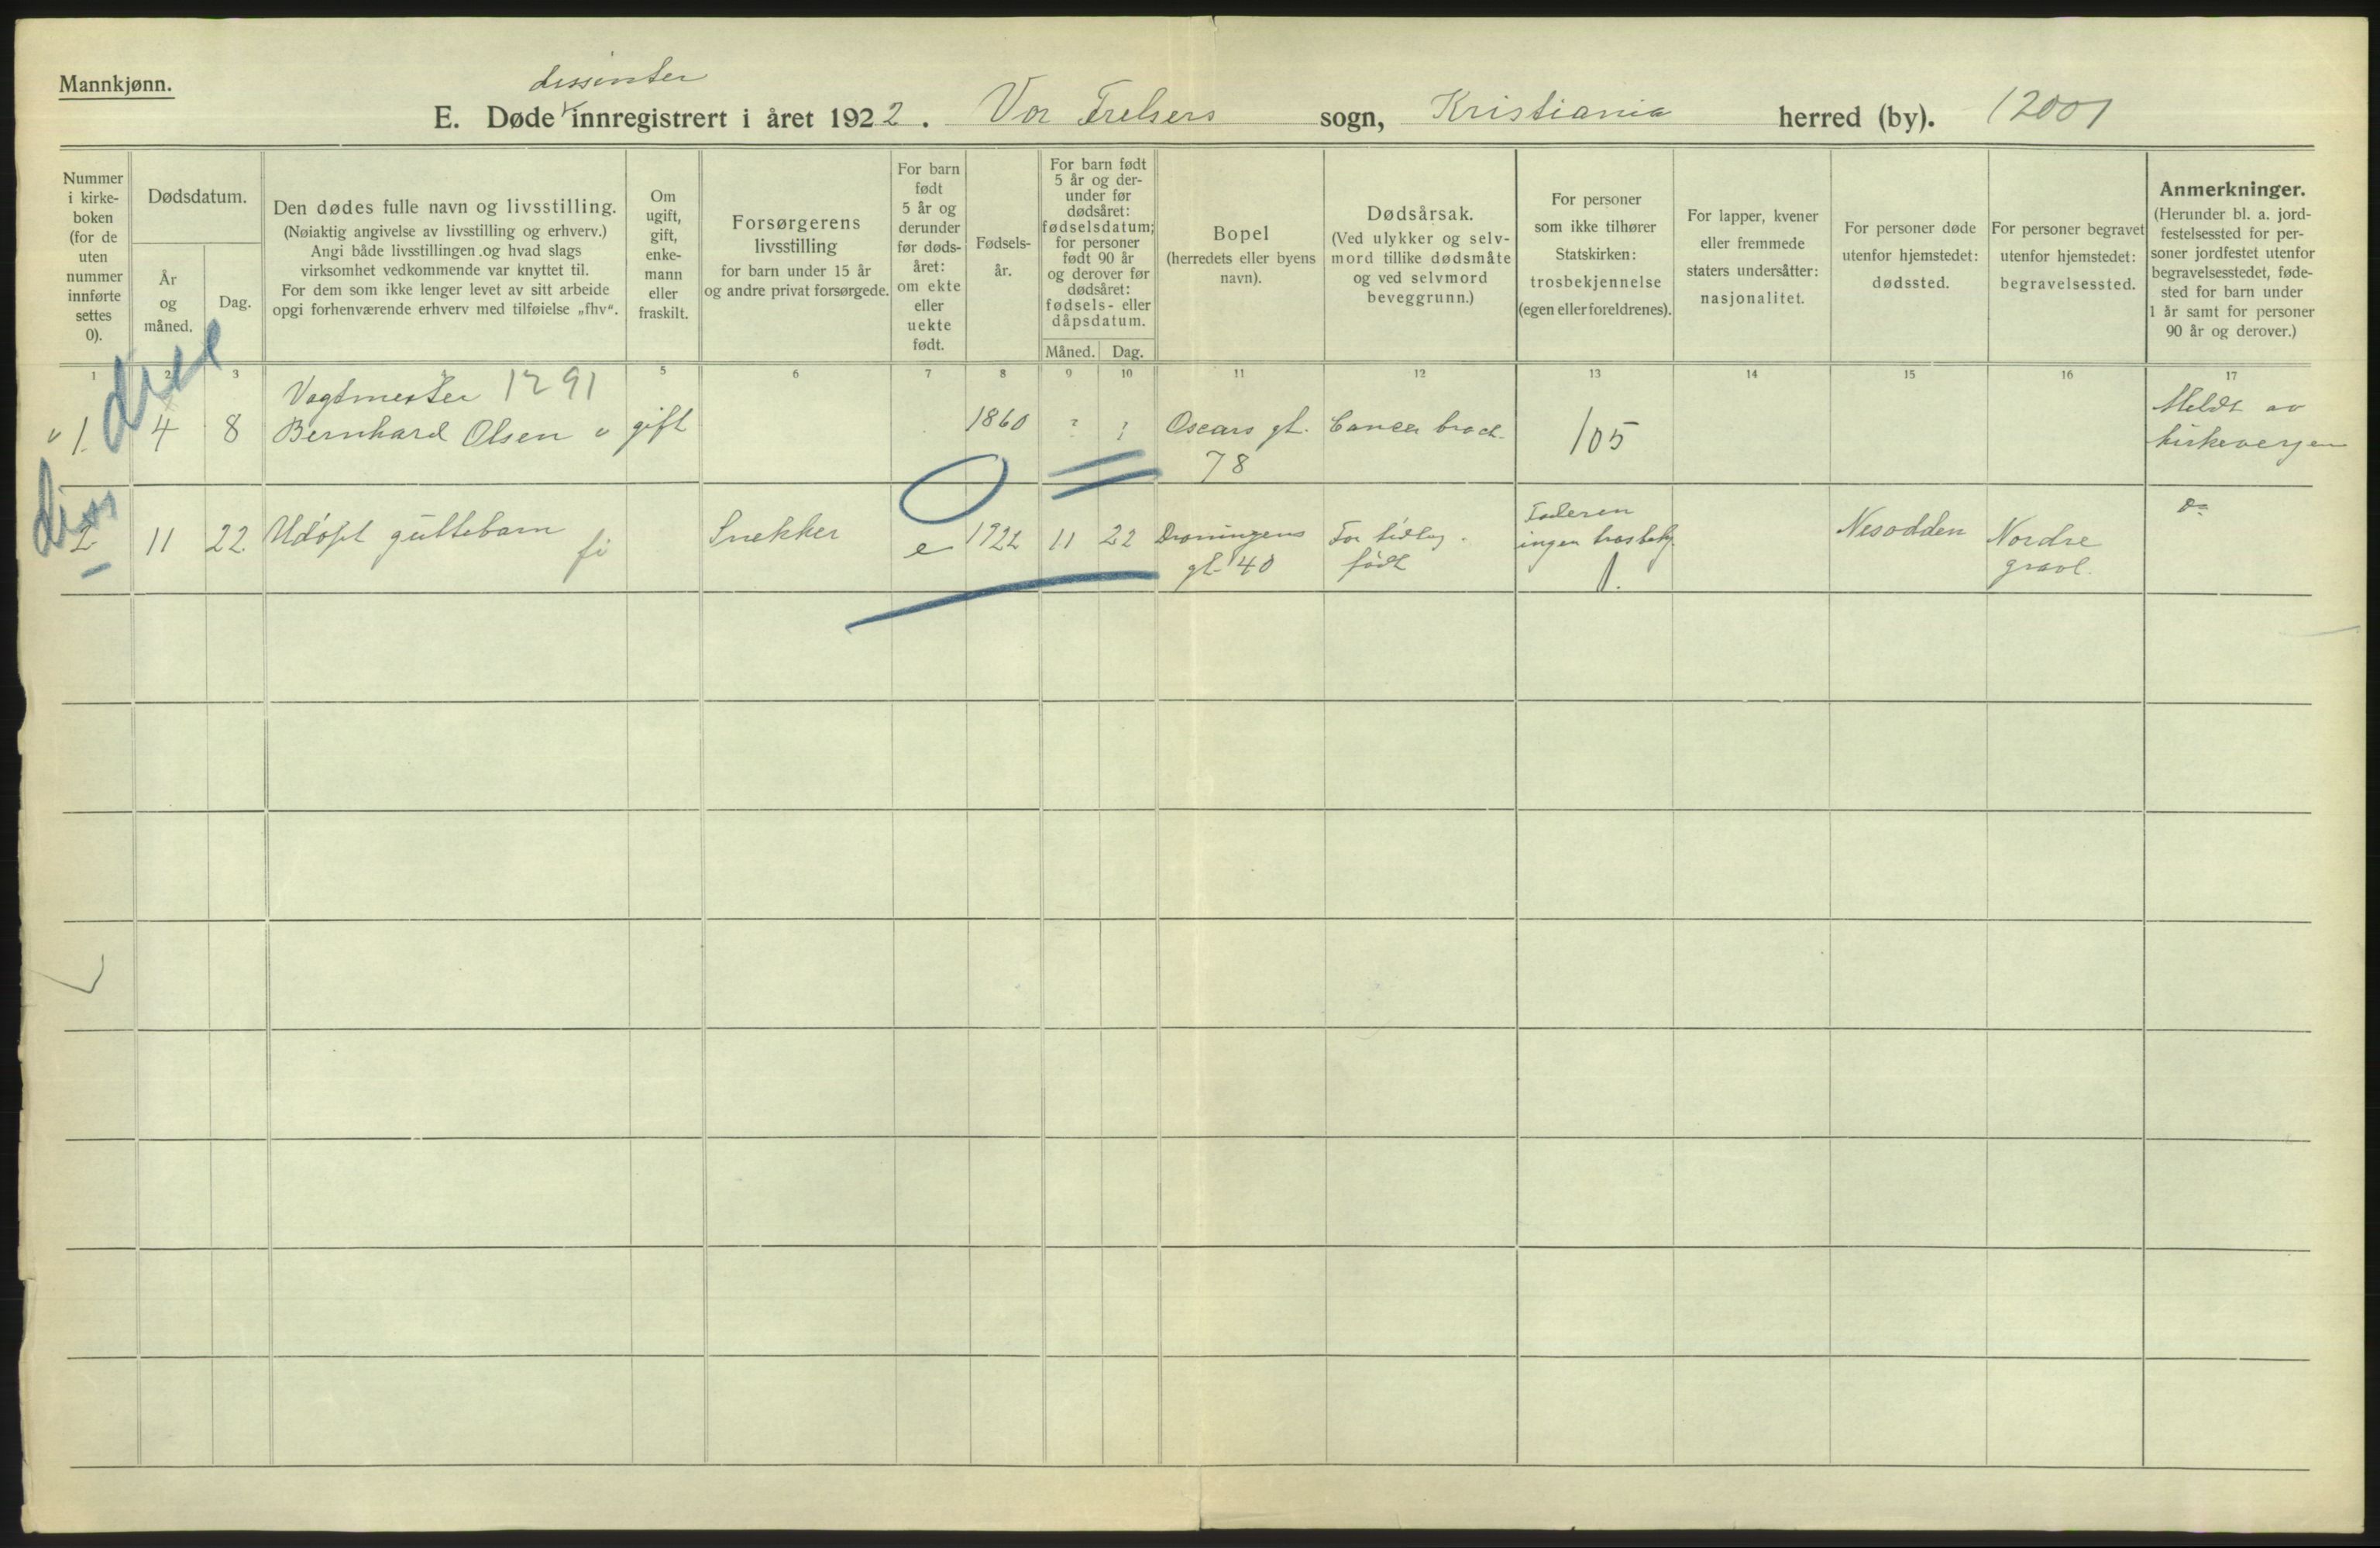 Mannkjønn.
dissenter
E. Døde innregistrert i året 1922. Vor Frelsers sogn, Kristiania herred (by). 12001
Nummer
i kirke-
boken
(for de
uten
nummer
innførte
settes
0).
Dødsdatum.
År
og
måned.
Dag.
Den dødes fulle navn og livsstilling.
(Nøiaktig angivelse av livsstilling og erhverv.)
Angi både livsstillingen og hvad slags
virksomhet vedkommende var knyttet til.
For dem som ikke lenger levet av sitt arbeide
opgi forhenværende erhverv med tilføielse „fhv“.
Om
ugift,
gift,
enke-
mann
eller
fraskilt.
Forsørgerens
livsstilling
for barn under 15 år
og andre privat forsørgede.
For barn
født
5 år og
derunder
før døds-
året:
om ekte
eller
uekte
født.
Fødsels-
år.
For barn født
5 år og der-
under før
dødsåret:
fødselsdatum;
for personer
født 90 år
og derover før
dødsåret:
fødsels- eller
dåpsdatum.
Måned. Dag.
Bopel
(herredets eller byens
navn).
Dødsårsak.
(Ved ulykker og selv-
mord tillike dødsmåte
og ved selvmord
beveggrunn.)
For personer
som ikke tilhører
Statskirken:
trosbekjennelse
(egen eller foreldrenes).
For lapper, kvener
eller fremmede
staters undersåtter:
nasjonalitet.
For personer døde
utenfor hjemstedet:
dødssted.
For personer begravet
utenfor hjemstedet:
begravelsessted.
Anmerkninger.
(Herunder bl. a. jord-
festelsessted for per-
soner jordfestet utenfor
begravelsesstedet, føde-
sted for barn under
1 år samt for personer
90 år og derover.)
1 2 3 5 6 7 8 9 10 11 12 13 14 15 16 17
diss
Vagtmester 1291
1. 4 8 Bernhard Olsen gift 1860 ? ? Oscars gt. Cancer 105 Meldt av
78 kirkevergen
diss
2 11 22 Udøpt guttebarn Snekker e 1922 11 22 Dronningens For tidlig Faderen Nesodden Nordre Do
gt 40 født ingen trosbekj. gravl.
1.